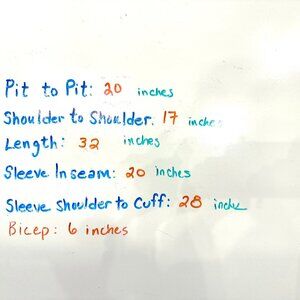 Pit to Pit: 20 inches
Shoulder to Shoulder: 17 inches
Length: 32 inches
Sleeve Inseam: 20 inches
Sleeve Shoulder to Cuff: 28 inches
Bicep: 6 inches